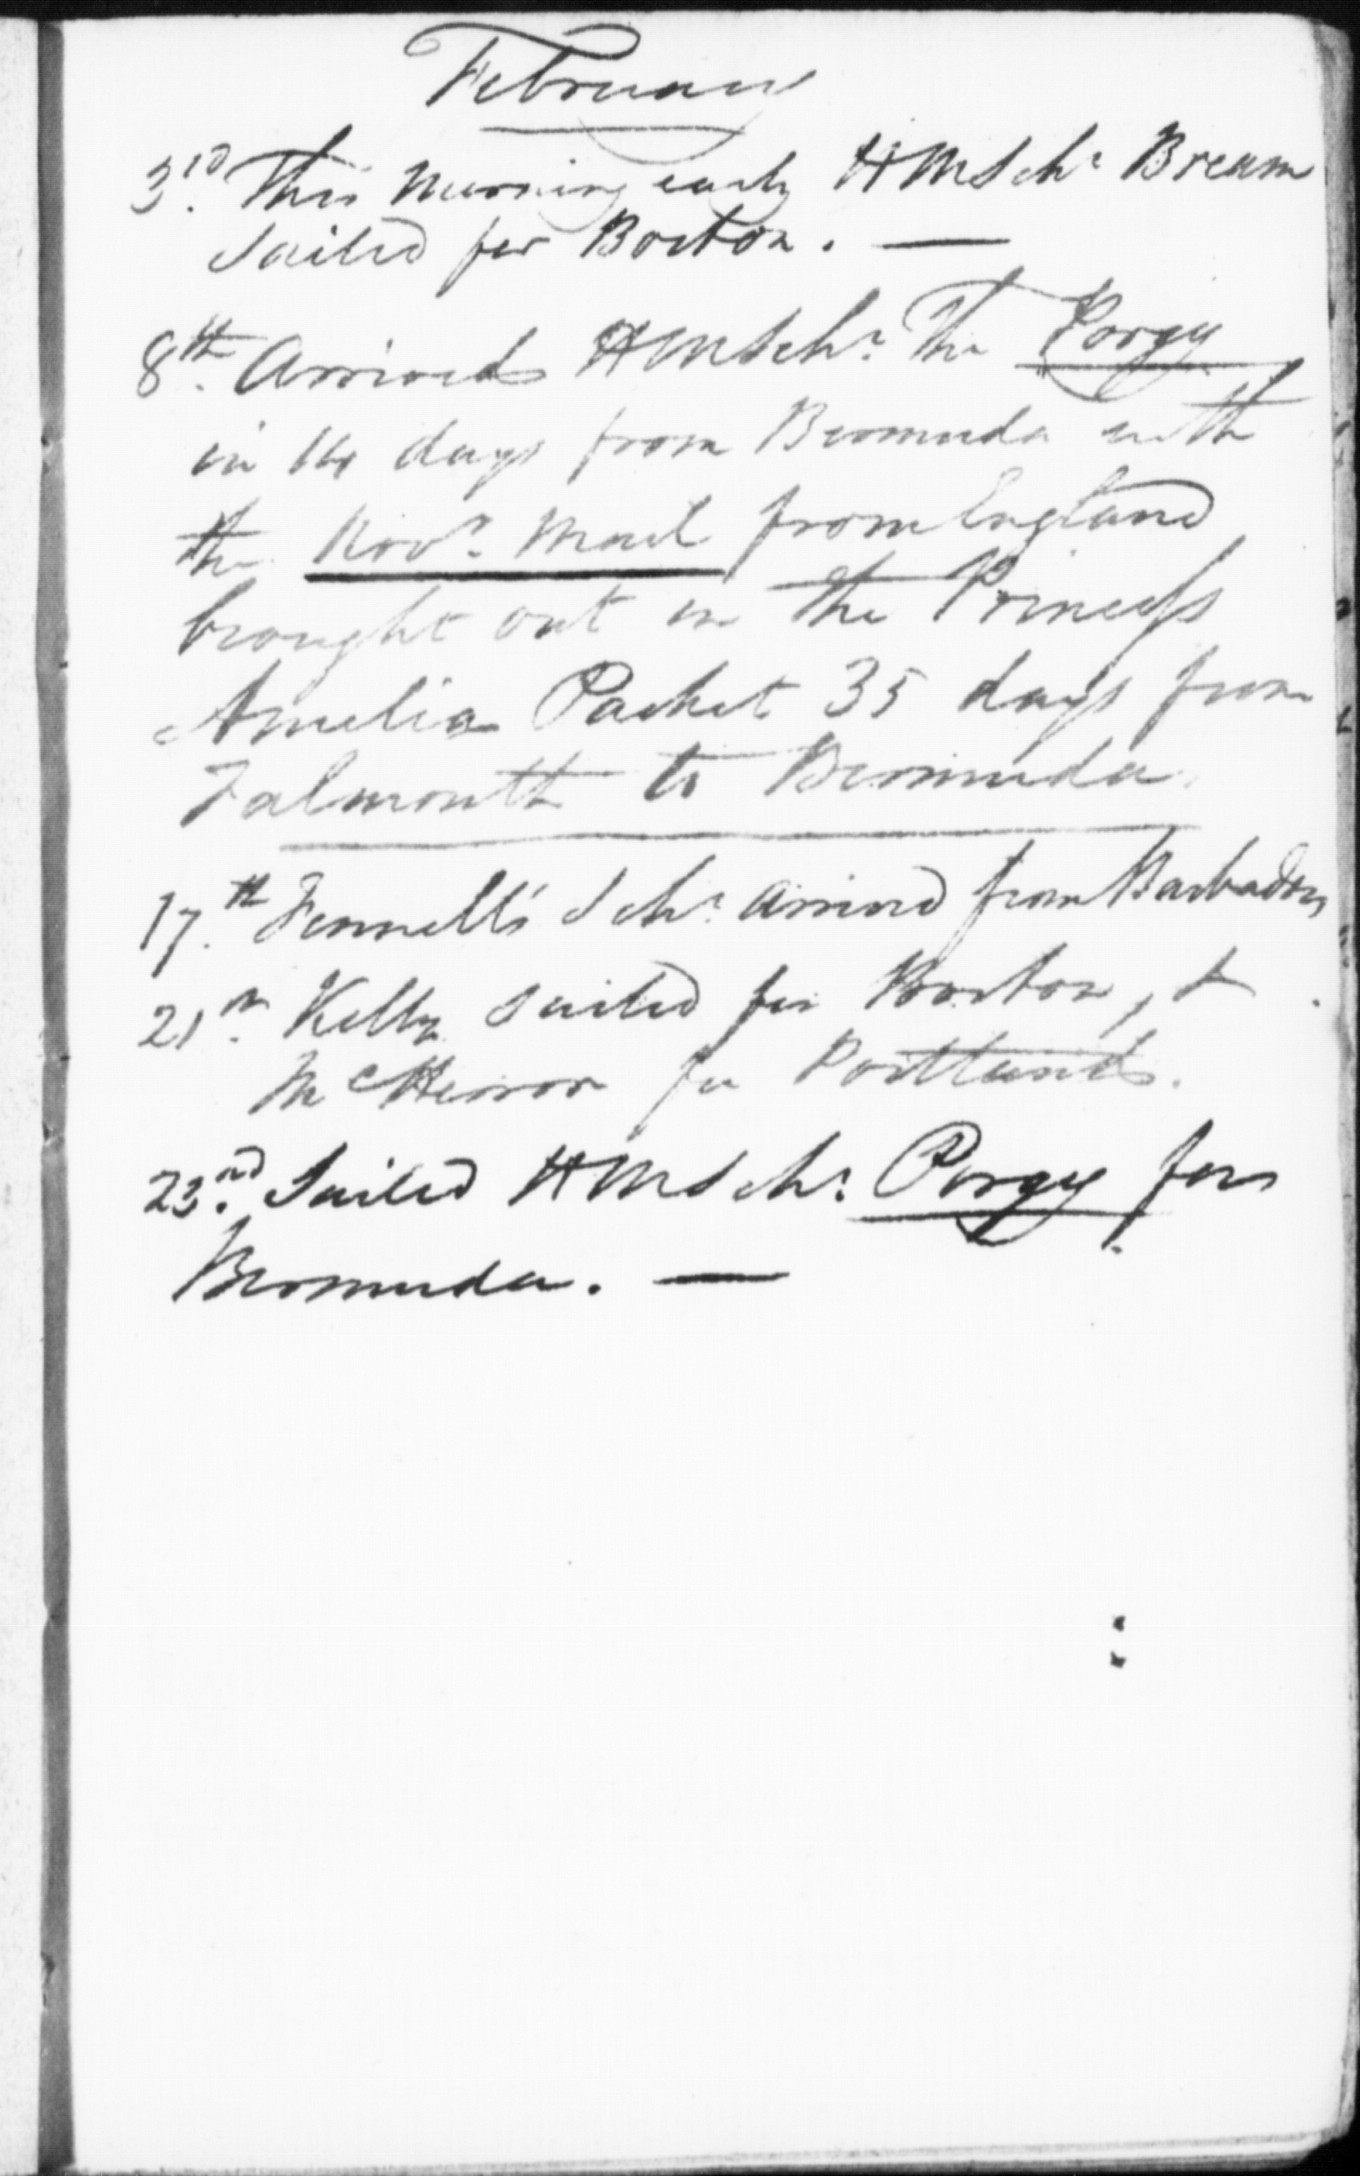 February
3rd. This Morning early HMSchr Bream
Sailed for Boston. —
8th. Arrived HMSchr. The Porgy
in 14 days from Bermuda with
the Novr. Mail from England
brought out in the Princess
Amelia Packet 35 days from
Falmouth to Bermuda.
17.th Fennell's Schr. arrived from Barbados
21st. Kelly Sailed for Boston, &
for Portland.
23nd. Sailed HMSchr. Porgy for
Bermuda. —